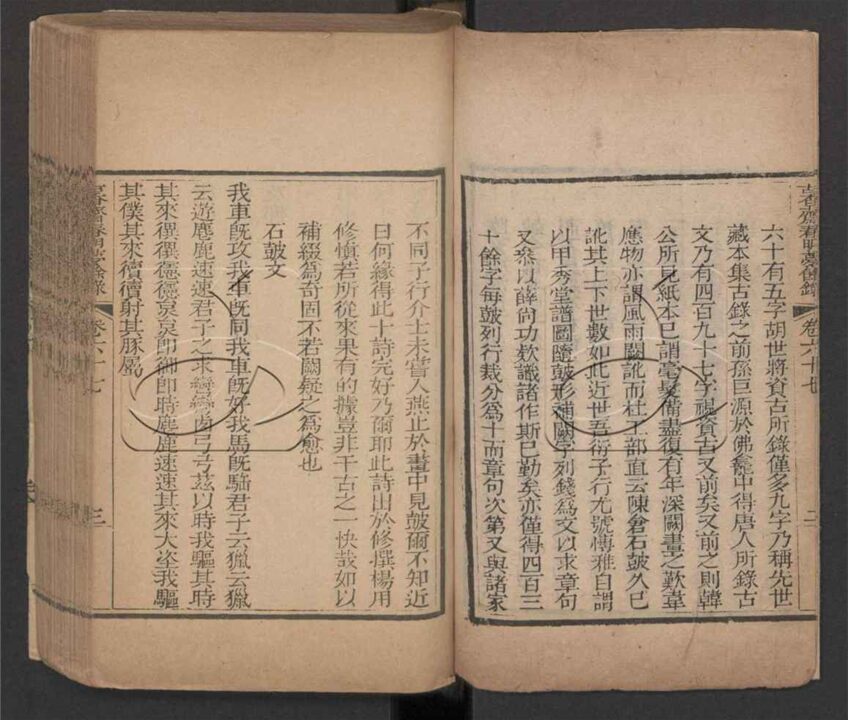 古香齋春明夢餘錄 卷六十七 二
六十有五字胡世將資古所錄僅多九字乃稱先世
藏本集古錄之前孫巨源於佛龕中得唐人所錄古
文乃有四百九十七字視資古又前矣又前之則韓
公所見紙本已謂毫髮備盡復有年深闕畫之歎韋
應物亦謂風雨闕訛而杜工部直云陳倉石皷久已
訛其上下世數如此近世吾衍子行尤號博雅自謂
以甲秀堂譜圖隨皷形補闕字列錢為文以求章句
又叅以薛尚功欵識諸作斯已勤矣亦僅得四百三
十餘字每皷列行裁分為十而章句次第又與諸家
不同子行介士未嘗入燕止於畫中見皷爾不知近
日何緣得此十詩完好乃爾耶此詩出於修撰楊用
修慎若所從來果有的據豈非千古之一快哉如以
補綴為奇固不若闕疑之為愈也
石皷文
我車旣攻我馬旣同我車旣好我馬旣騊君子云獵云獵
云遊麀鹿速速君子之求弓茲以時我驅其時
其來趩趩卽御卽時麀鹿速速其來大我驅
其僕其來犢犢射其豚屬
古香齋春明夢餘錄 卷六十七 三